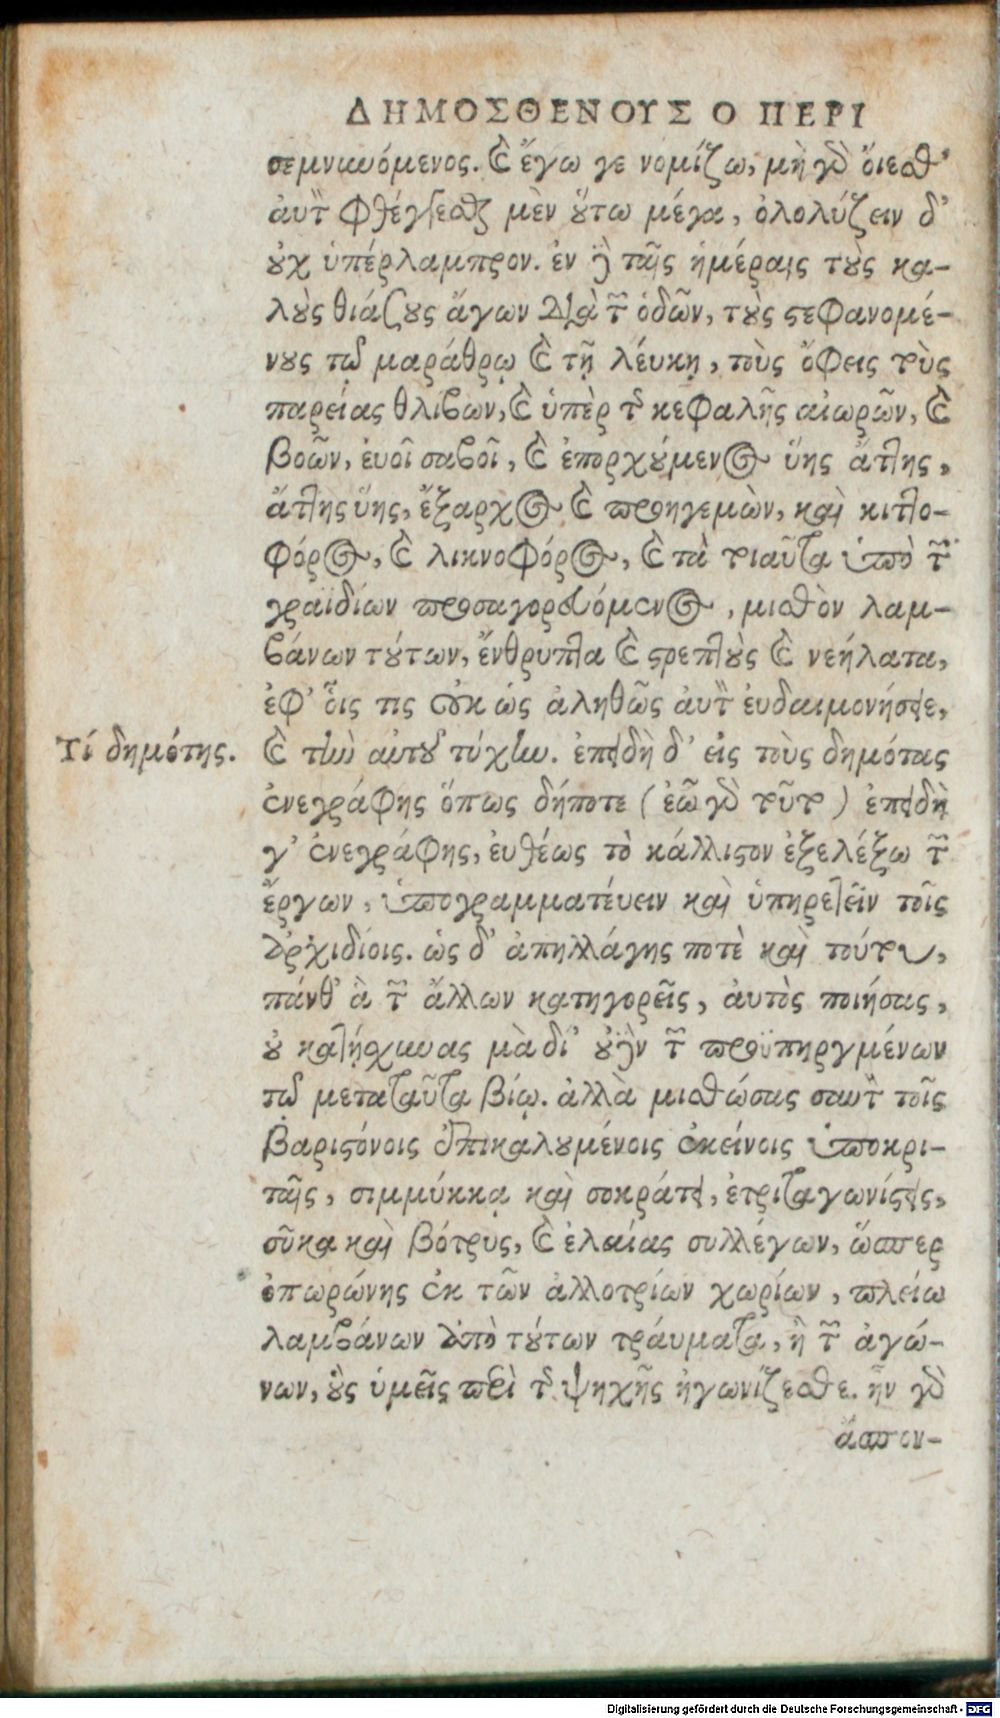 ΔΗΜΟΣΘΕΝΟΥΣ Ο ΠΕΡΙ
σεμνυνόμενος. καὶ ἔγω γε νομίζω, μὴ γὰρ ὄιεσθ’
ἀυτὸν φθέγγεσθαι μὲν ὅυτω μέγα, ὀλολύζειν δ’
ὀυχ ὑπέρλαμπρον. ἐν δὲ ταῖς ἡμέραις τοὺς κα-
λοὺς θιάσους ἄγων διὰ τῶν ὁδῶν, τοὺς στεφανομέ-
νους τῷ μαράθρῳ καὶ τῇ λέυκῃ, τοὺς ὄφεις τοὺς
παρείας θλίβων, καὶ ὑπὲρ τῆς κεφαλῆς αἰωρῶν, καὶ
βοῶν, ἐυοῖ σαβοῖ, καὶ ἐπορχούμενος ὕης ἄττης,
ἄττης ὕης, ἔξαρχος καὶ προηγεμὼν, καὶ κιττο-
φόρος, καὶ λικνοφόρος, καὶ τὰ τοιαῦτα ὑπὸ τῶν
γραϊδίων προσαγορευόμενος, μισθὸν λαμ-
βάνων τούτων, ἔνθρυπτα καὶ στρεπτοὺς καὶ νεήλατα,
ἐφ’ οἷς τις οὐκ ὡς ἀληθῶς ἀυτὸν ἐυδαιμονήσειε,
Τί δημότης.
καὶ τὴν αὐτοῦ τύχην. ἐπειδὴ δ’ εἰς τοὺς δημότας
ἐνεγράφης ὅπως δήποτε (ἐῶ γὰρ τοῦτο) ἐπειδὴ
γ’ ἐνεγράφης, ἐυθέως τὸ κάλλιστον ἐξελέξω τῶν
ἔργων, ὑπογραμματέυειν καὶ ὑπηρετεῖν τοῖς
ἀρχιδίοις. ὡς δ’ ἀπηλλάγης ποτὲ καὶ τούτου,
πάνθ’ ἃ τῶν ἄλλων κατηγορεῖς, ἀυτὸς ποιήσας,
οὐ κατῄσχυνας μὰ δί’ οὐδὲν τῶν προϋπηργμένων
τῷ μεταταῦτα βίῳ. ἀλλὰ μισθώσας σαυτὸν τοῖς
βαρυστόνοις ἐπικαλουμένοις ἐκείνοις ὑποκρι-
ταῖς, σιμμύκκᾳ καὶ σοκράτει, ἐτριταγωνίστεις,
σῦκα καὶ βότρυς, καὶ ἐλαίας συλλέγων, ὥσπερ
ὀπωρώνης ἐκ τῶν ἀλλοτρίων χωρίων, πλείω
λαμβάνων ἀπὸ τούτων τράυματα, ἢ τῶν ἀγώ-
νων, οὓς ὑμεῖς περὶ τῆς ψηχῆς ἠγωνίζεσθε. ἦν γὰρ
ἄσπον-
Digitalisierung gefördert durch die Deutsche Forschungsgemeinschaft - DFG